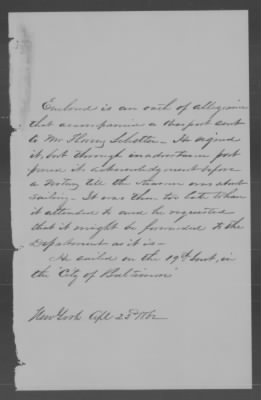 Enclosed is an oath of allegiance
that accompanied a Passport sent
to Mr Henry Schotter - He signed
it, but through inadvertence post
poned its acknowledgment before
a Notary till the Steamer was about
sailing - It was then too late to have
it attended to and he requested
that it might be forwarded to the
Department as it is -
He sailed on the 19th Inst, in
the "City of Baltimore"
New York Apl 23rd 1862